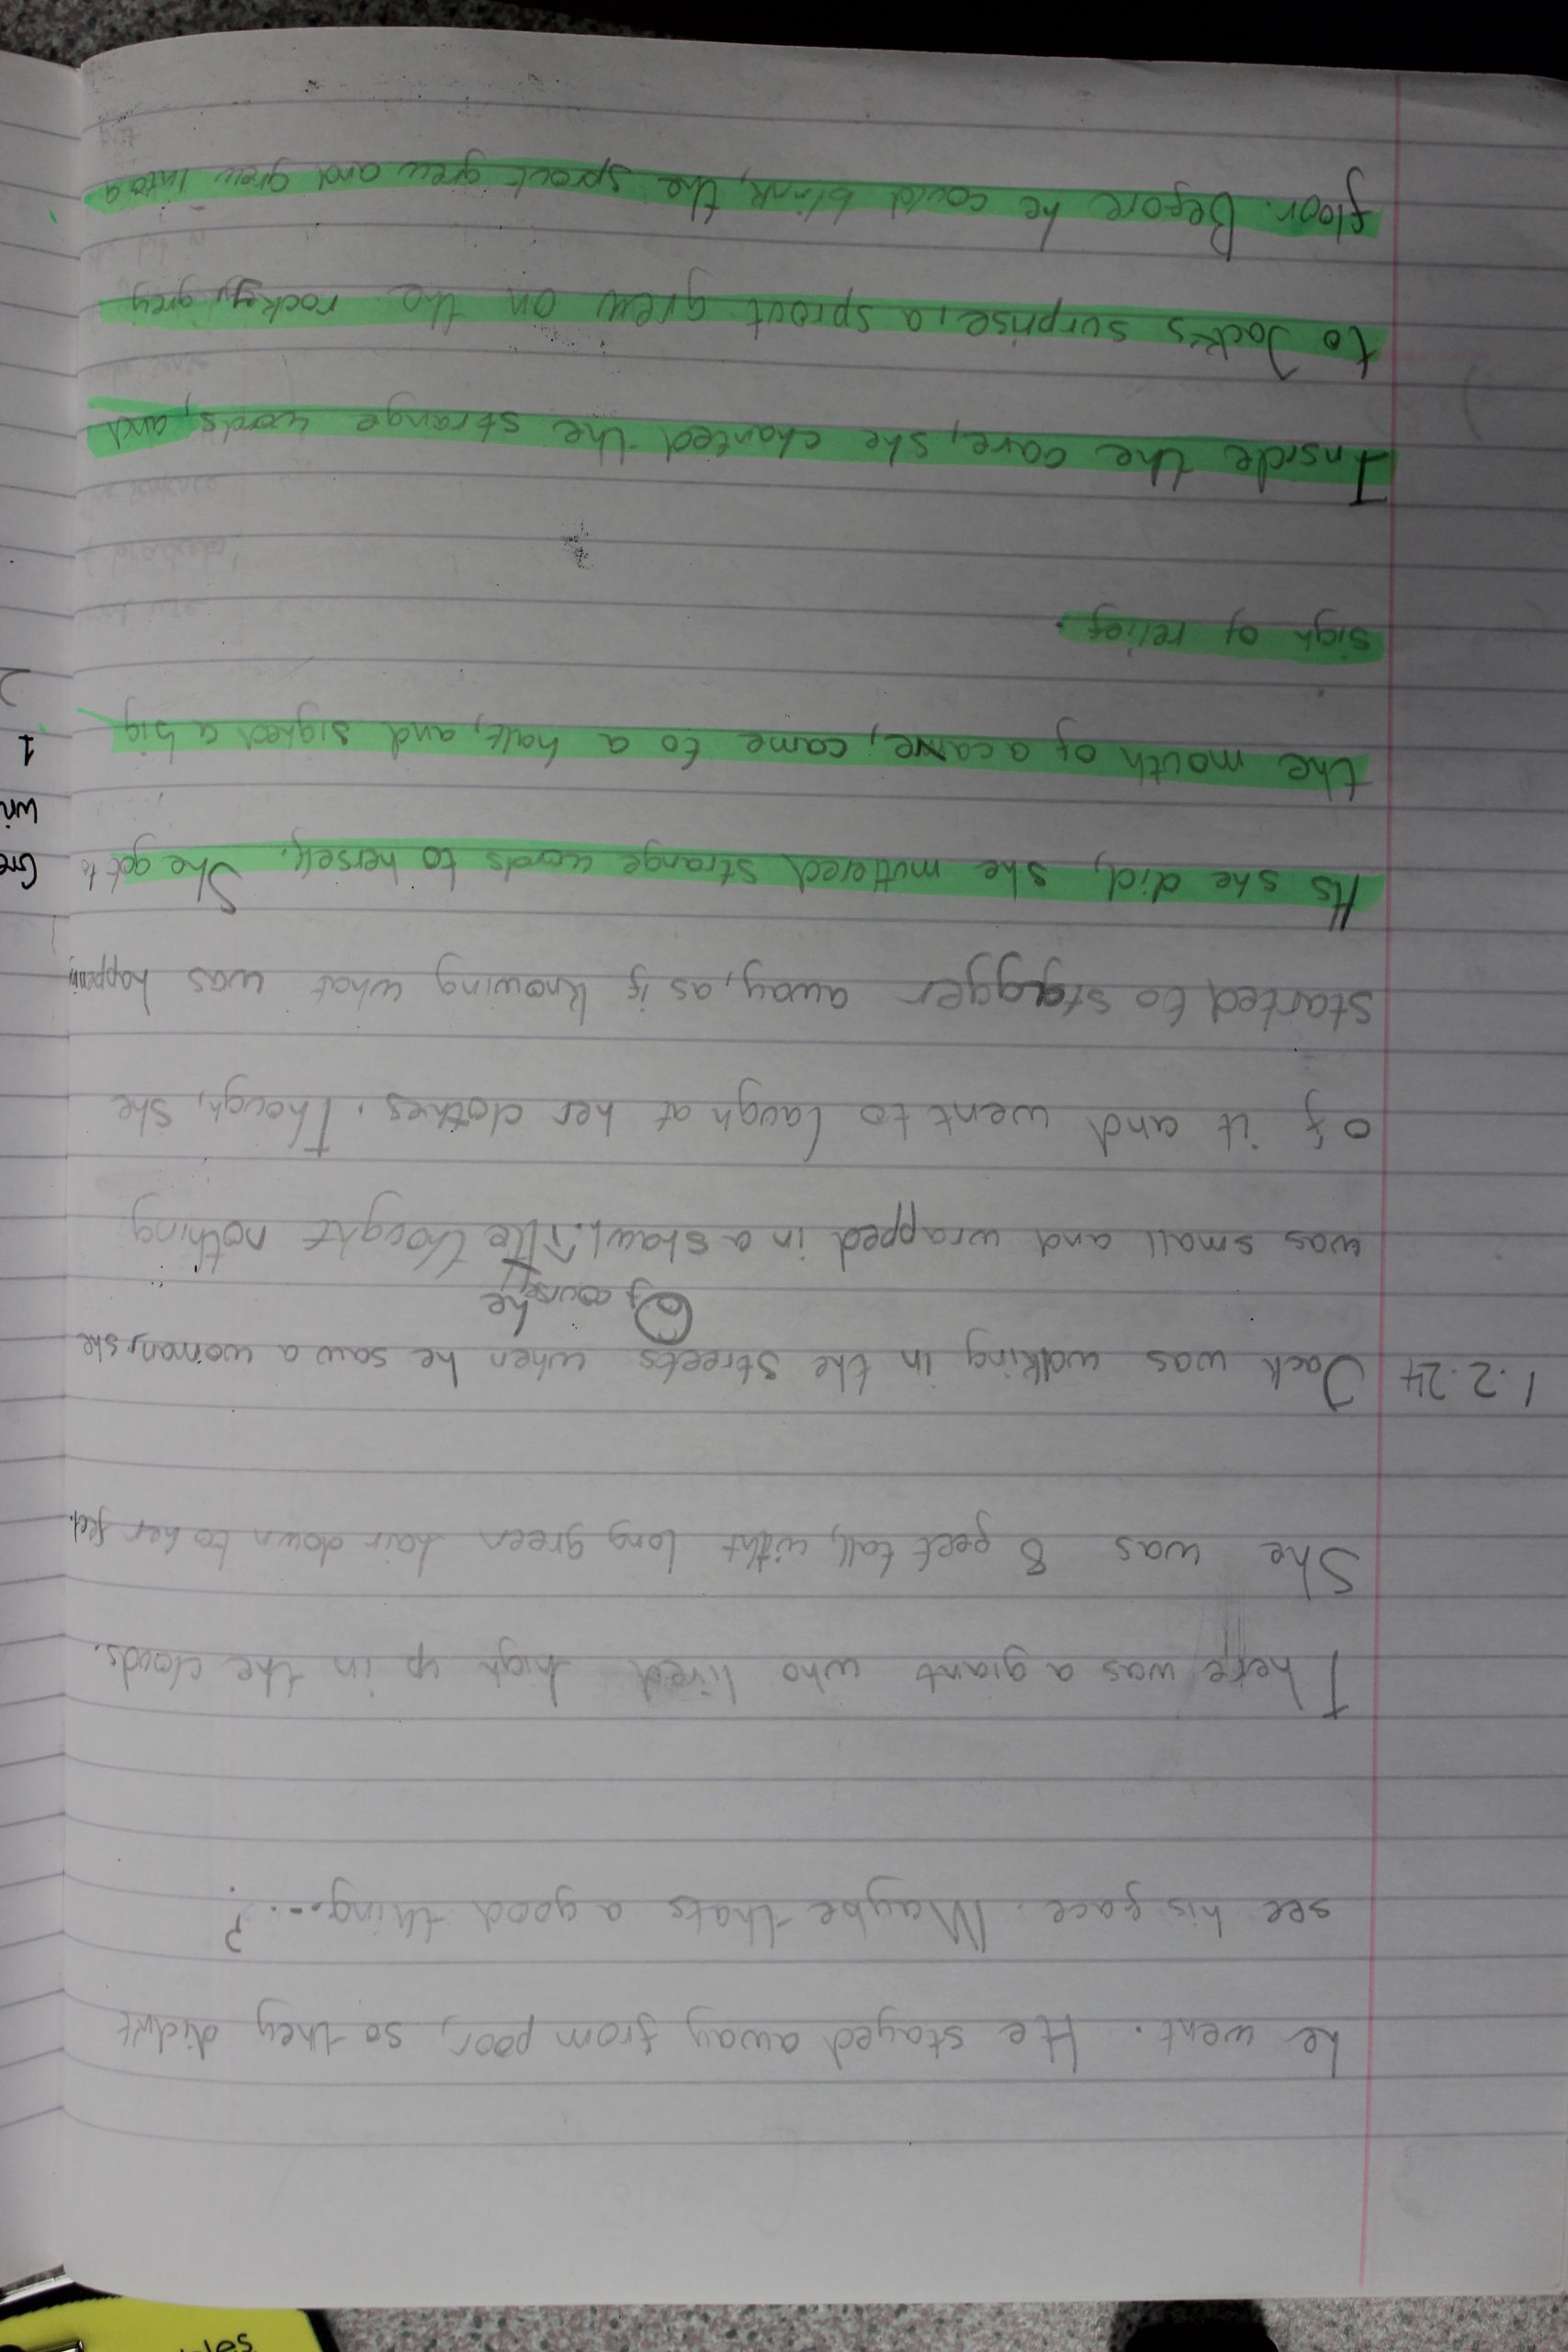 he went. He stayed away from poor, so they didn't
see his face. Maybe thats a good thing...?
There was a giant who lived high up in the clouds.
She was 8 feet tall, witht long green hair down to her feet.
1.2.24 Jack was walking in the streets when he saw a woman, she
Of course he
was small and wrapped in a shawl. He thought nothing
of it and went to laugh at her clothes. Though, she
started to stagger away, as if knowing what was happening
As she did, she muttered strange words to herself. She got to
the mouth of a cave, came to a halt, and sighed a big
sigh of relief.
Inside the cave, she chanted the strange words, and
to Jack's surprise, a sprout grew on the rockgy, grey
floor. Before he could blink, the sprout grew and grew into a
Gre
wri
1
2
les